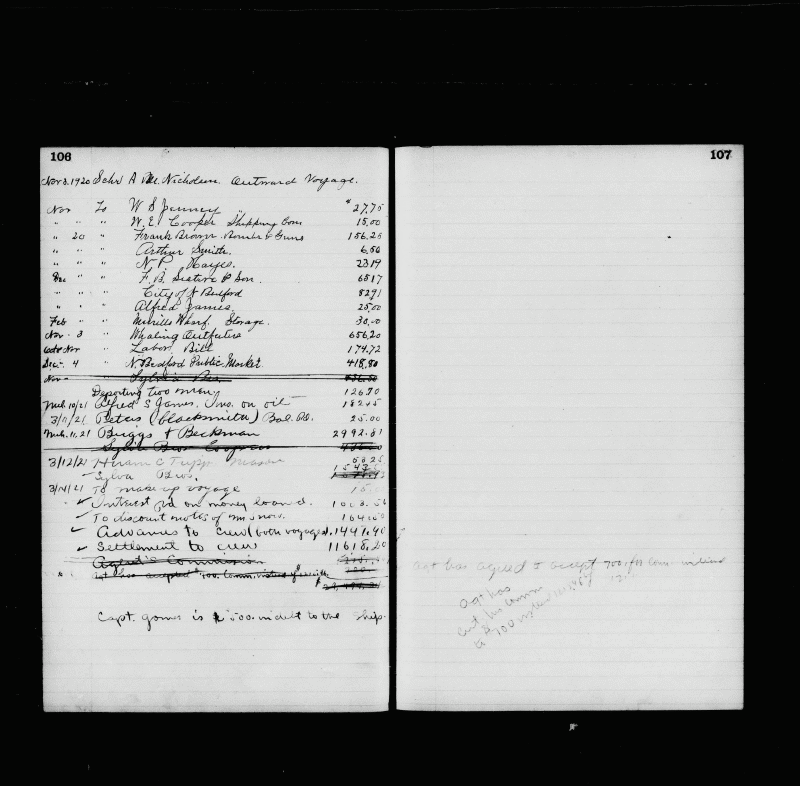 106
Nov 3. 1920 Schr A M. Nicholson. Outward Voyage.
Nov To W S Jenney $27.75
" " " W. E. Cooper Shipping Com 15.00
" 20 " Frank Brown. Bombs & Guns 156.25
" " " Arthur Smith. 6.50
" " " N. P. Hayes. 23 19
Dec " F. B. & Son. 65 17
" " City of N Bedford 82 91
" " " Alfred James 25.00
Feb " Merrills Wharf. Storage. 30.00
Nov. 3 " Whaling Outfitters 656.20
Nov " Labor Bill 174.72
Dec. 4 " N. Bedford Public. Market 418.80
Nov " Sylvia Bros.
Deporting two men 126.70
Mch. 10/21 Alfred S James. Ins. on oil 182 45
3/11/21 Peters (blacksmith) Bal. Pd. 25.00
Mch. 11, 21 Briggs & Beckman 2992.81
Sylvia Bros
3/12/21 Hiram C Tripp Mason
Sylva Bros.
3/14/21 To make up voyage
Interest pd on money loaned.
To discount notes of
Advances to crew (both voyages). 1441.40
Settlement to crew 11618.20
Agent's Commission
agt has accepted 700. Comm. instead of
Capt. gomes is $500. in debt to the ship.
107
agt has agreed to accept 700. for Com. instead
Agt has
cut his comm
to 700 instead